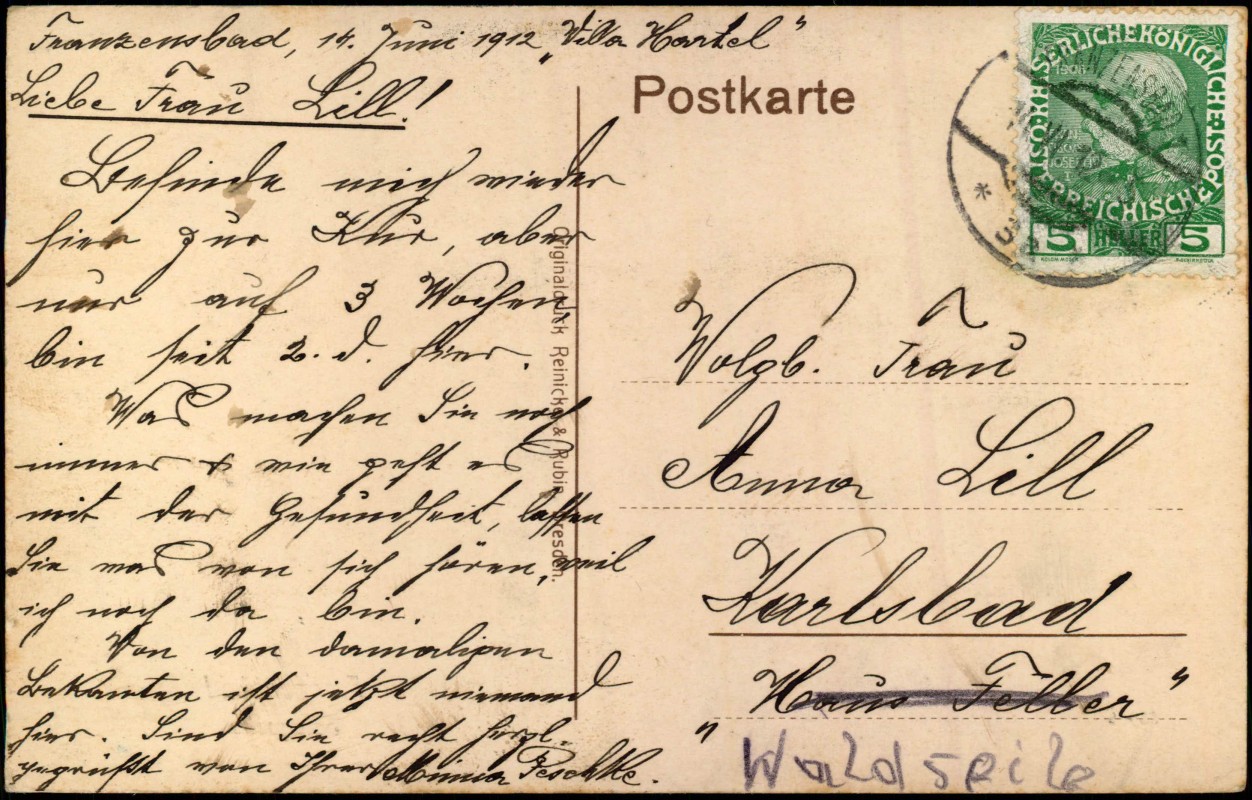 Franzensbad, 14. Juni 1912 „Villa Hartel"
Liebe Frau Lill!
Befinde mich wieder
hier zur Kur, aber
nur auf 3 Wochen,
bin seit 2. d. hier.
Was machen Sie noch
immer & wie geht es
mit der Gesundheit, lassen
Sie was von sich hören, weil
ich noch da bin.
Von den damaligen
Bekannten ist jetzt niemand
hier. Sind Sie recht herzl.
gegrüßt von Ihrer Minna Peschke.
Originaldruck Reinicke & Rubin, Dresden.
Postkarte
KAISERLICHE KÖNIGLICHE ÖSTERREICHISCHE POST
5 HELLER 5
Wolgb. Frau
Anna Lill
Karlsbad
„Haus Feller"
Waldzeile